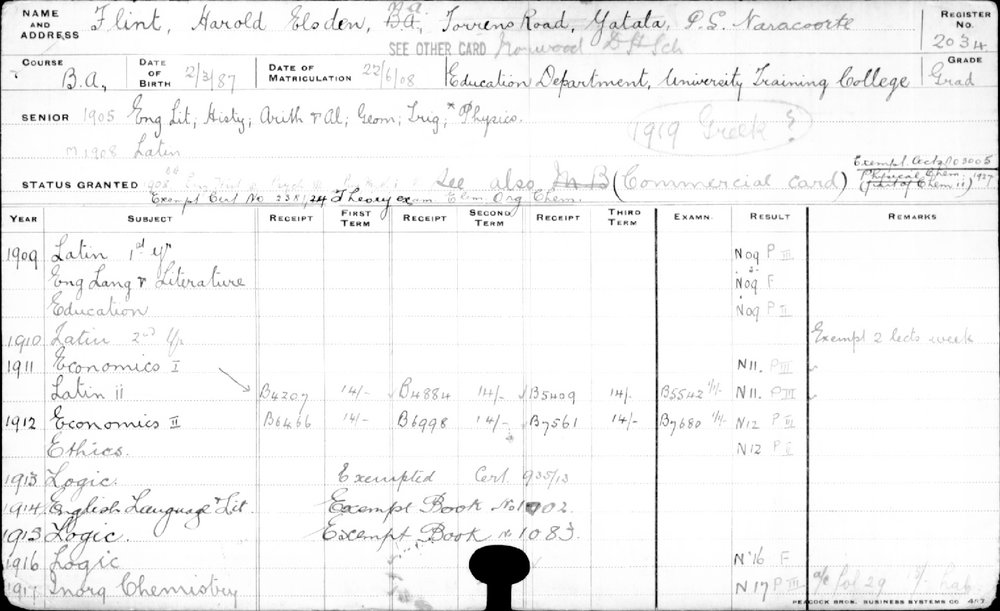 NAME AND ADDRESS Flint, Harold Elsden, B.A., Torrens Road, Yatala, P.S. Naracoorte REGISTER No. 2034
SEE OTHER CARD Norwood D H Sch
COURSE B.A, DATE OF BIRTH 2/3/87 DATE OF MATRICULATION 22/6/08 Education Department, University Training College GRADE Grad
SENIOR 1905 Eng Lit; Histy; Arith & Al; Geom; Trig; * Physics. 1919 Greek ?
M 1908 Latin
STATUS GRANTED See also M B (Commercial card) Exempt. Acta no 3005
Physical Chem. (part of Chem ii) 1927
Exempt Cert No 238/24 Theory exam Elem. Org Chem.
YEAR SUBJECT RECEIPT FIRST TERM RECEIPT SECOND TERM RECEIPT THIRD TERM EXAMN. RESULT REMARKS
1909 Latin 1st yr N09 P III
Eng Lang & Literature N09 F
Education N09 P II
1910 Latin 2nd yr Exempt 2 lects week
1911 Economics I N11. P III
Latin ii B4207 14/- B4884 14/- B5409 14/- B5542 N11. P III
1912 Economics II B6466 14/- B6998 14/- B7561 14/- B7680 N12 P III
Ethics. N12 P
1913 Logic. Exempted Cert. 935/13
1914 English Language & Lit. Exempt Book No 1002
1915 Logic. Exempt Book No 1083
1916 Logic N'16 F
1917 Inorg Chemistry N17 P III a/c fol 29 lab
PEACOCK BROS. BUSINESS SYSTEMS CO